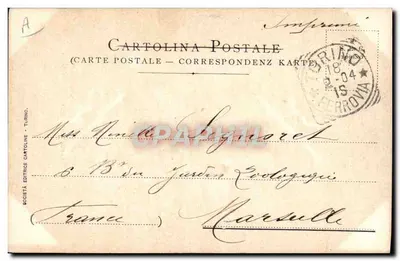 A
Imprimé
CARTOLINA POSTALE
(CARTE POSTALE — CORRESPONDENZ KARTE)
TORINO
18
2-04
1S
* FERROVIA *
Miss
6 Bd du Jardin Zoologique
(France) Marseille
SOCIETÀ EDITRICE CARTOLINE - TORINO.
cartepostale